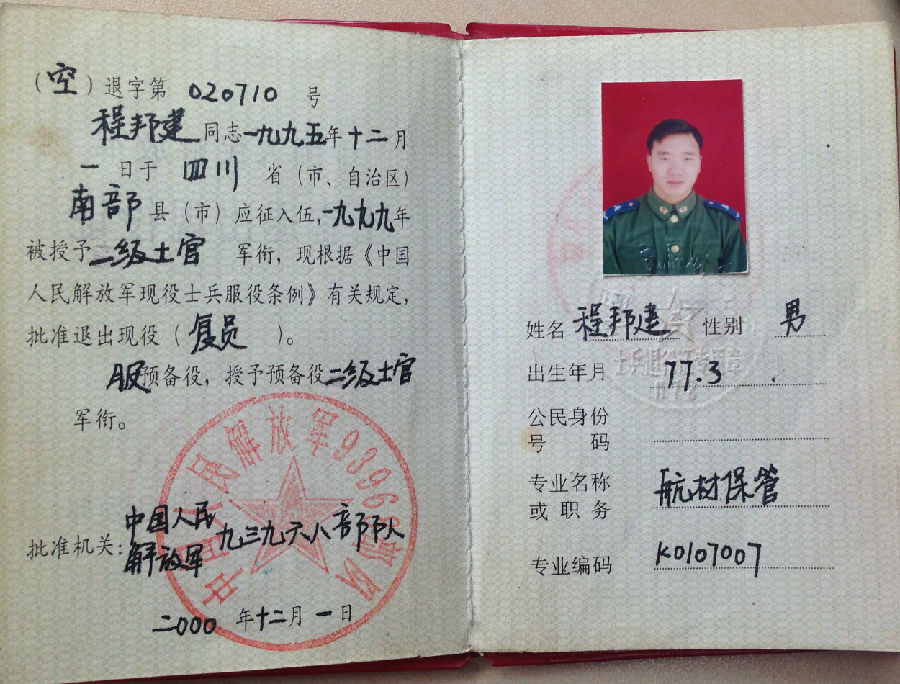 （空）退字第 020710 号
程邦建同志一九九五年十二月
一日于 四川 省（市、自治区）
南部县（市）应征入伍，一九九九年
被授予二级士官 军衔，现根据《中国
人民解放军现役士兵服役条例》有关规定，
批准退出现役（复员）。
服预备役，授予预备役二级士官
军衔。
批准机关：中国人民解放军九三九六八部部队
二000年十二月一日
姓名 程邦建 性别 男
出生年月 77.3
公民身份号码
专业名称或职务 航材保管
专业编码 K0107007